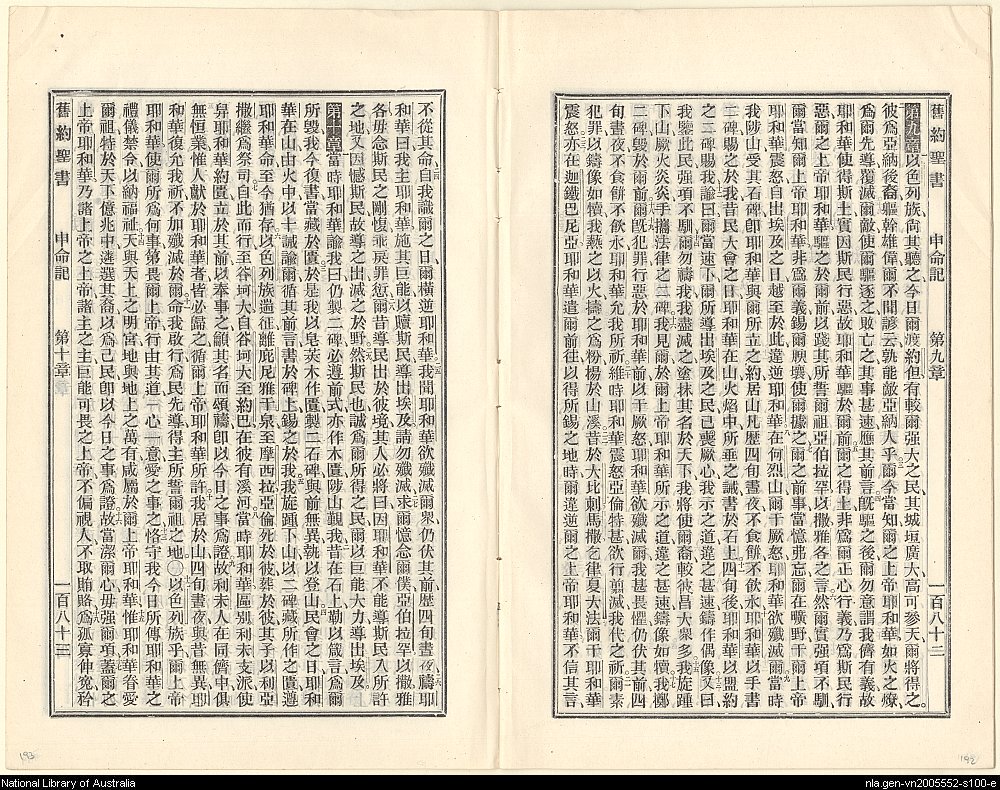 舊約聖書 申命記 第九章 一百八十二
第九章以色列族尙其聽之今日爾渡約但有較爾强大之民其城垣廣大高可參天爾將得之
彼爲亞納後裔軀幹雄偉爾不聞諺云孰能敵亞納人乎爾今當知爾之上帝耶和華如火之燎
爲爾先導覆滅爾敵使爾驅逐之敗亡之其事甚速應其前言旣驅之後爾勿意謂我儕有義故
耶和華使得斯土實因斯民行惡故耶和華驅於爾前爾之得土非爲爾正心行義乃爲斯民行
惡爾之上帝耶和華驅之於爾前以踐其所誓爾祖亞伯拉罕以撒雅各之言然爾實强項不馴
爾當知爾上帝耶和華非爲爾義錫爾腴壤使爾據之爾之前事當憶弗忘爾在曠野干爾上帝
耶和華震怒自出埃及之日越至於此違逆耶和華在何烈山爾干厥怒耶和華欲殲滅爾當時
我陟山受其石碑卽耶和華與爾所立之約居山凡歷四旬晝夜不食餅不飮水耶和華以手書
二碑賜之於我昔民大會之日耶和華在山火焰中所垂之誡書於石上四旬後耶和華以盟約
之二碑賜我諭曰爾當速下爾所導出埃及之民已喪厥心我示之道違之甚速鑄作偶像又曰
我鑒此民强項不馴爾勿禱我我盡滅之塗抹其名於天下我將使爾裔較彼昌大衆多我旋踵
下山厥火炎炎手攜法律之二碑我見爾於爾上帝耶和華所示之道違之甚速鑄像如犢我擲
二碑毀於爾前爾旣犯罪行惡於耶和華前以干厥怒耶和華欲殲滅爾我甚畏懼仍伏其前四
旬晝夜不食餅不飮水耶和華允我所祈維時耶和華震怒亞倫特甚欲行翦滅我代之祈爾素
犯罪以鑄像如犢我爇之以火擣之爲粉揚於山溪昔於大比剌馬撒乞律夏大法爾干耶和華
震怒亦在迦鐵巴尼亞耶和華遣爾前往以得所錫之地時爾違逆爾之上帝耶和華不信其言
不從其命自我識爾之日爾橫逆耶和華我聞耶和華欲殲滅爾衆仍伏其前歷四旬晝夜禱耶
和華曰我主耶和華施其巨能以贖斯民導出埃及請勿殲滅求爾憶念爾僕亞伯拉罕以撒雅
各毋念斯民之剛愎乖戾罪愆爾昔導民出於彼境其人必將曰因耶和華不能導斯民入所許
之地又因憾斯民故導之出滅之於野然斯民也誠爲爾所得之民爾以巨能大力導出埃及
第十章當時耶和華諭我曰仍製二碑必遵前式亦作木匱陟山覲我昔在石上勒以箴言爲爾
所毀我今復書當藏於匱於是我以皂莢木作匱製二石碑與前無異執以登山民會之日耶和
華在山由火中以十誡諭爾循其前言書於碑上錫之於我我旋踵下山以二碑藏所作之匱遵
耶和華命至今猶存以色列族遄征離庇尼雅干泉至摩西拉亞倫死於彼葬於彼其子以利亞
撒繼爲祭司自此而行至谷珂大自谷珂大至約巴在彼有溪河當時耶和華區別利未支派使
舁耶和華約匱立於其前以奉事之籲其名而頌禱卽以今日之事爲證故利未人在同儕中俱
無恒業惟人獻於耶和華者皆必歸之循爾上帝耶和華所許我居於山四旬晝夜與昔無異耶
和華復允我祈不加殲滅於爾命我啟行爲民先導得主所誓爾祖之地○以色列族乎爾上帝
耶和華使爾所爲何事第畏爾上帝行由其道一心一意愛之事之恪守我今日所傳耶和華之
禮儀禁令以納福祉天與天上之明宮地與地上之萬有咸屬於爾上帝耶和華惟耶和華眷愛
爾祖特於天下億兆中遴選其裔以爲己民卽以今日之事爲證故當潔爾心毋强爾項蓋爾之
上帝耶和華乃諸上帝之上帝諸主之主巨能可畏之上帝不偏視人不取賄賂爲孤寡伸寃矜
舊約聖書 申命記 第十章 一百八十三
193
192
National Library of Australia
nla.gen-vn2005552-s100-e